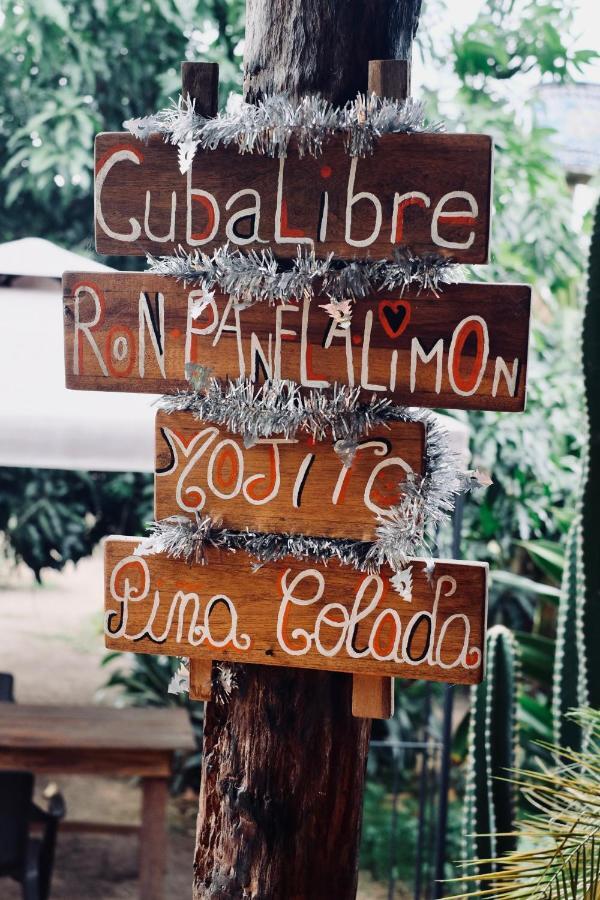 CubaLibre
RON·PANELALiMON
MOJITO
Piña Colada